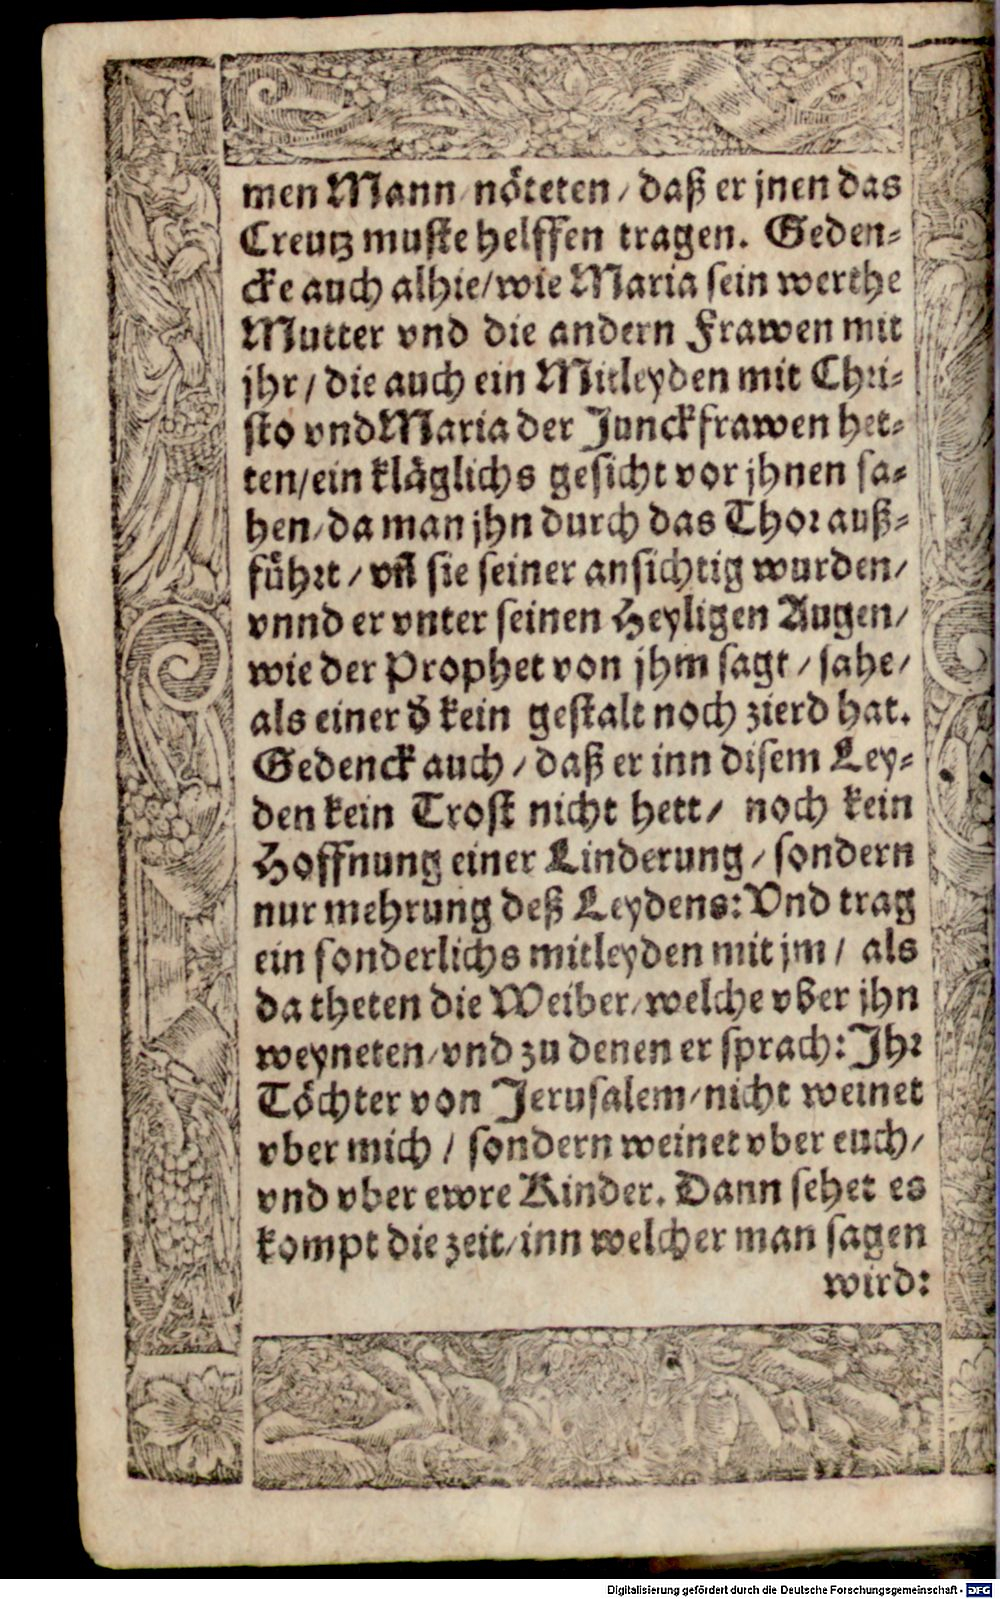 men Mann / nöteten / daß er jnen das
Creutz muste helffen tragen. Geden-
cke auch alhie / wie Maria sein werthe
Mutter vnd die andern Frawen mit
jhr / die auch ein Mitleyden mit Chri-
sto vnd Maria der Junckfrawen het-
ten / ein kläglichs gesicht vor jhnen sa-
hen / da man jhn durch das Thor auß-
führt / vñ sie seiner ansichtig wurden /
vnnd er vnter seinen Heyligen Augen /
wie der Prophet von jhm sagt / sahe /
als einer d̄ kein gestalt noch zierd hat.
Gedenck auch / daß er inn disem Ley-
den kein Trost nicht hett / noch kein
Hoffnung einer Linderung / sondern
nur mehrung deß Leydens: Vnd trag
ein sonderlichs mitleyden mit jm / als
da theten die Weiber / welche vber jhn
weyneten / vnd zu denen er sprach: Jhr
Töchter von Jerusalem / nicht weinet
vber mich / sondern weinet vber euch /
vnd vber ewre Kinder. Dann sehet es
kompt die zeit / inn welcher man sagen
wird:
Digitalisierung gefördert durch die Deutsche Forschungsgemeinschaft - DFG